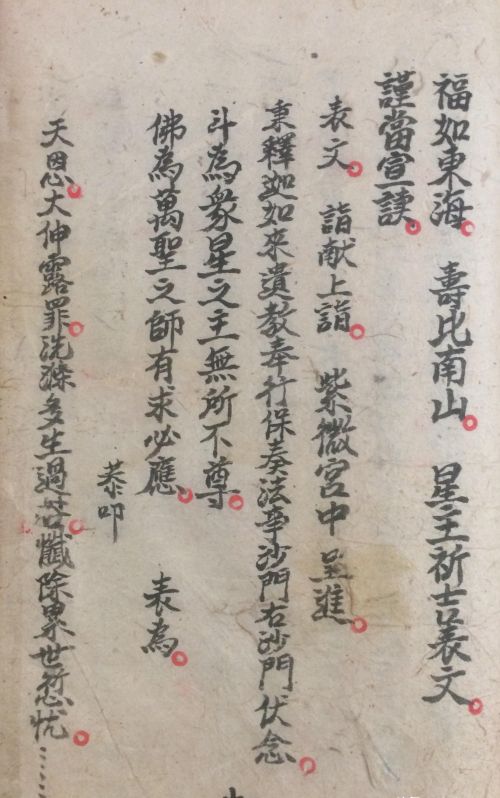 福如東海 壽比南山 星主祈吉表文
謹當宣
表文 詣献上詣 紫微宮中 呈進
秉釋迦如來遺教奉行保奏法事沙門右沙門伏念
斗為衆星之主無所不尊
佛為萬聖之師有求必應 表為
恭叩
天恩大伸露罪洗滌多生過咎懺除累世愆忧……